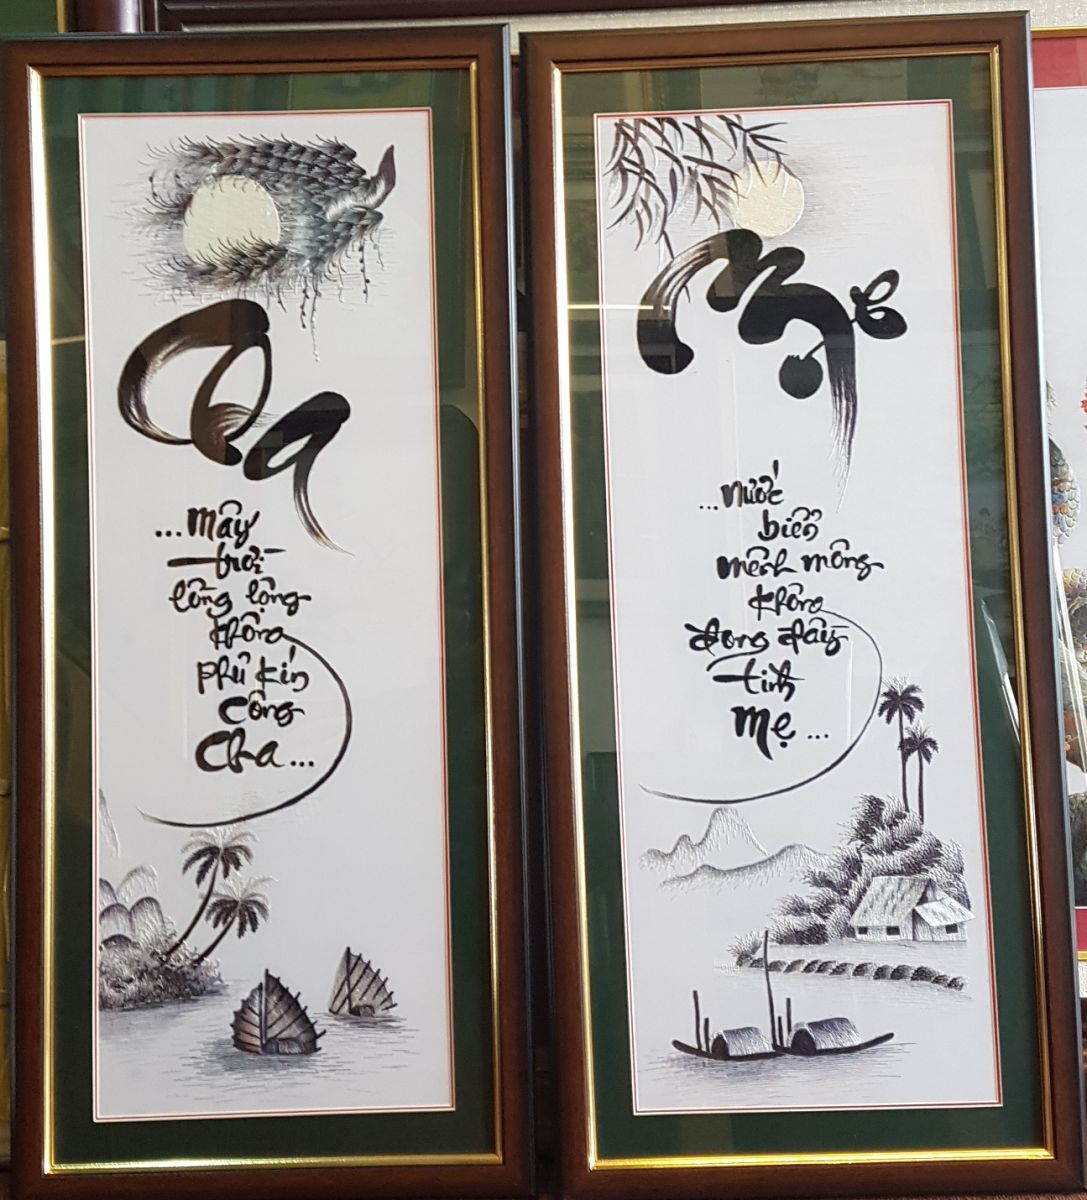 Cha
...mây
trời
lồng lộng
không
phủ kín
công
Cha...
Mẹ
...nước
biển
mênh mông
không
đong đầy
tình
Mẹ...